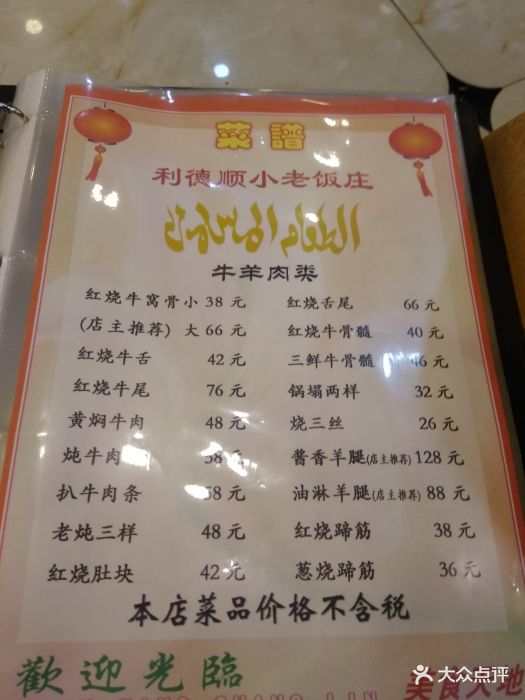 菜譜
利德顺小老饭庄
الطعام الإسلامي
牛羊肉类
红烧牛窝骨小 38 元 红烧舌尾 66 元
(店主推荐) 大 66 元 红烧牛骨髓 40 元
红烧牛舌 42 元 三鲜牛骨髓 46 元
红烧牛尾 76 元 锅塌两样 32 元
黄焖牛肉 48 元 烧三丝 26 元
炖牛肉 58 元 酱香羊腿(店主推荐) 128 元
扒牛肉条 58 元 油淋羊腿(店主推荐) 88 元
老炖三样 48 元 红烧蹄筋 38 元
红烧肚块 42 元 葱烧蹄筋 36 元
本店菜品价格不含税
歡迎光臨
大众点评